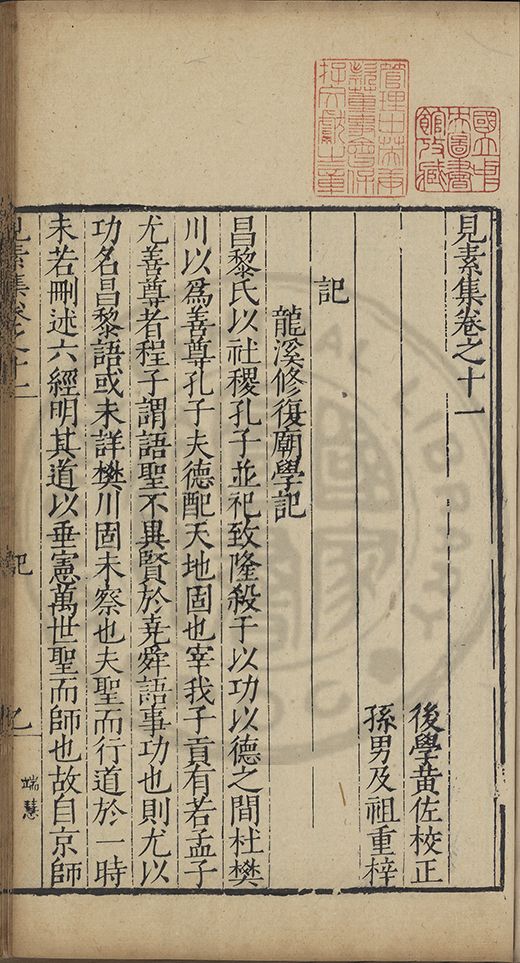 國立中
央圖書
館收藏
管理中英庚
款董事會保
存文獻之章
見素集卷之十一
後學黃佐校正
孫男及祖重梓
記
龍溪修復廟學記
昌黎氏以社稷孔子並祀致隆殺于以功以德之間杜樊
川以爲善尊孔子夫德配天地固也宰我子貢有若孟子
尤善尊者程子謂語聖不異賢於堯舜語事功也則尤以
功名昌黎語或未詳樊川固未察也夫聖而行道於一時
未若刪述六經明其道以垂憲萬世聖而師也故自京師
見素集卷之十一
記
端慧